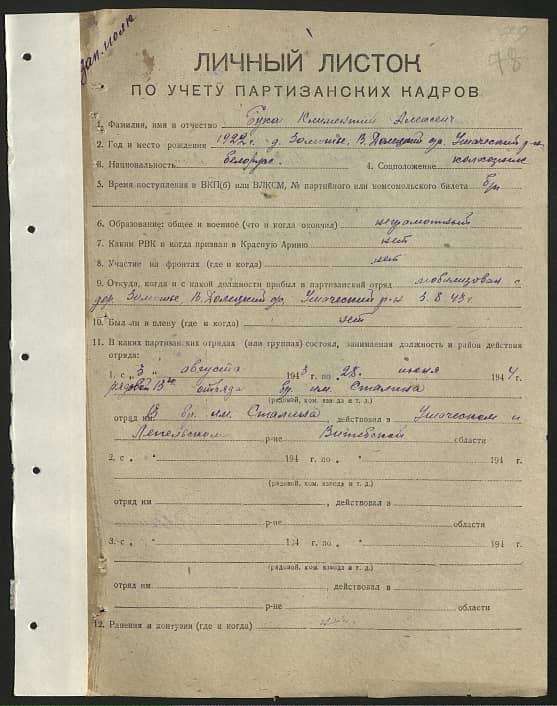 зап. молн
79
78
ЛИЧНЫЙ ЛИСТОК
ПО УЧЕТУ ПАРТИЗАНСКИХ КАДРОВ
1. Фамилия, имя и отчество Бука Климентий Алексеич
2. Год и место рождения 1922 г. д. Замошье, В. Долецкий с/с, Ушачский р-н,
3. Национальность белорус. 4. Соцположение колхозник
5. Время поступления в ВКП(б) или ВЛКСМ, № партийного или комсомольского билета б/п
6. Образование: общее и военное (что и когда окончил) неграмотный
7. Каким РВК и когда призван в Красную Армию нет
8. Участие на фронтах (где и когда) нет
9. Откуда, когда и с какой должности прибыл в партизанский отряд мобилизован с
дер. Замошье, В. Долецкий с/с, Ушачский р-н 3.8.43 г.
10. Был ли в плену (где и когда) нет
11. В каких партизанских отрядах (или группах) состоял, занимаемая должность и район действия
отряда:
1. с „3 „ августа 1943 г. по „28. июня 1944 г.
рядовой 13го отряда бр. им. Сталина
(рядовой, ком. взвода и т. д.)
отряд 13 бр. им. Сталина действовал в Ушачском и
Лепельском р-не Витебской области
2. с „ “ 194 г. по „ “ 194 г.
(рядовой, ком. взвода и т. д.)
отряд им , действовал в
р-не области
3. с „ “ 194 г. по „ “ 194 г.
(рядовой, ком. взвода и т. д.)
отряд им , действовал в
р-не области
12. Ранения и контузии (где и когда) нет